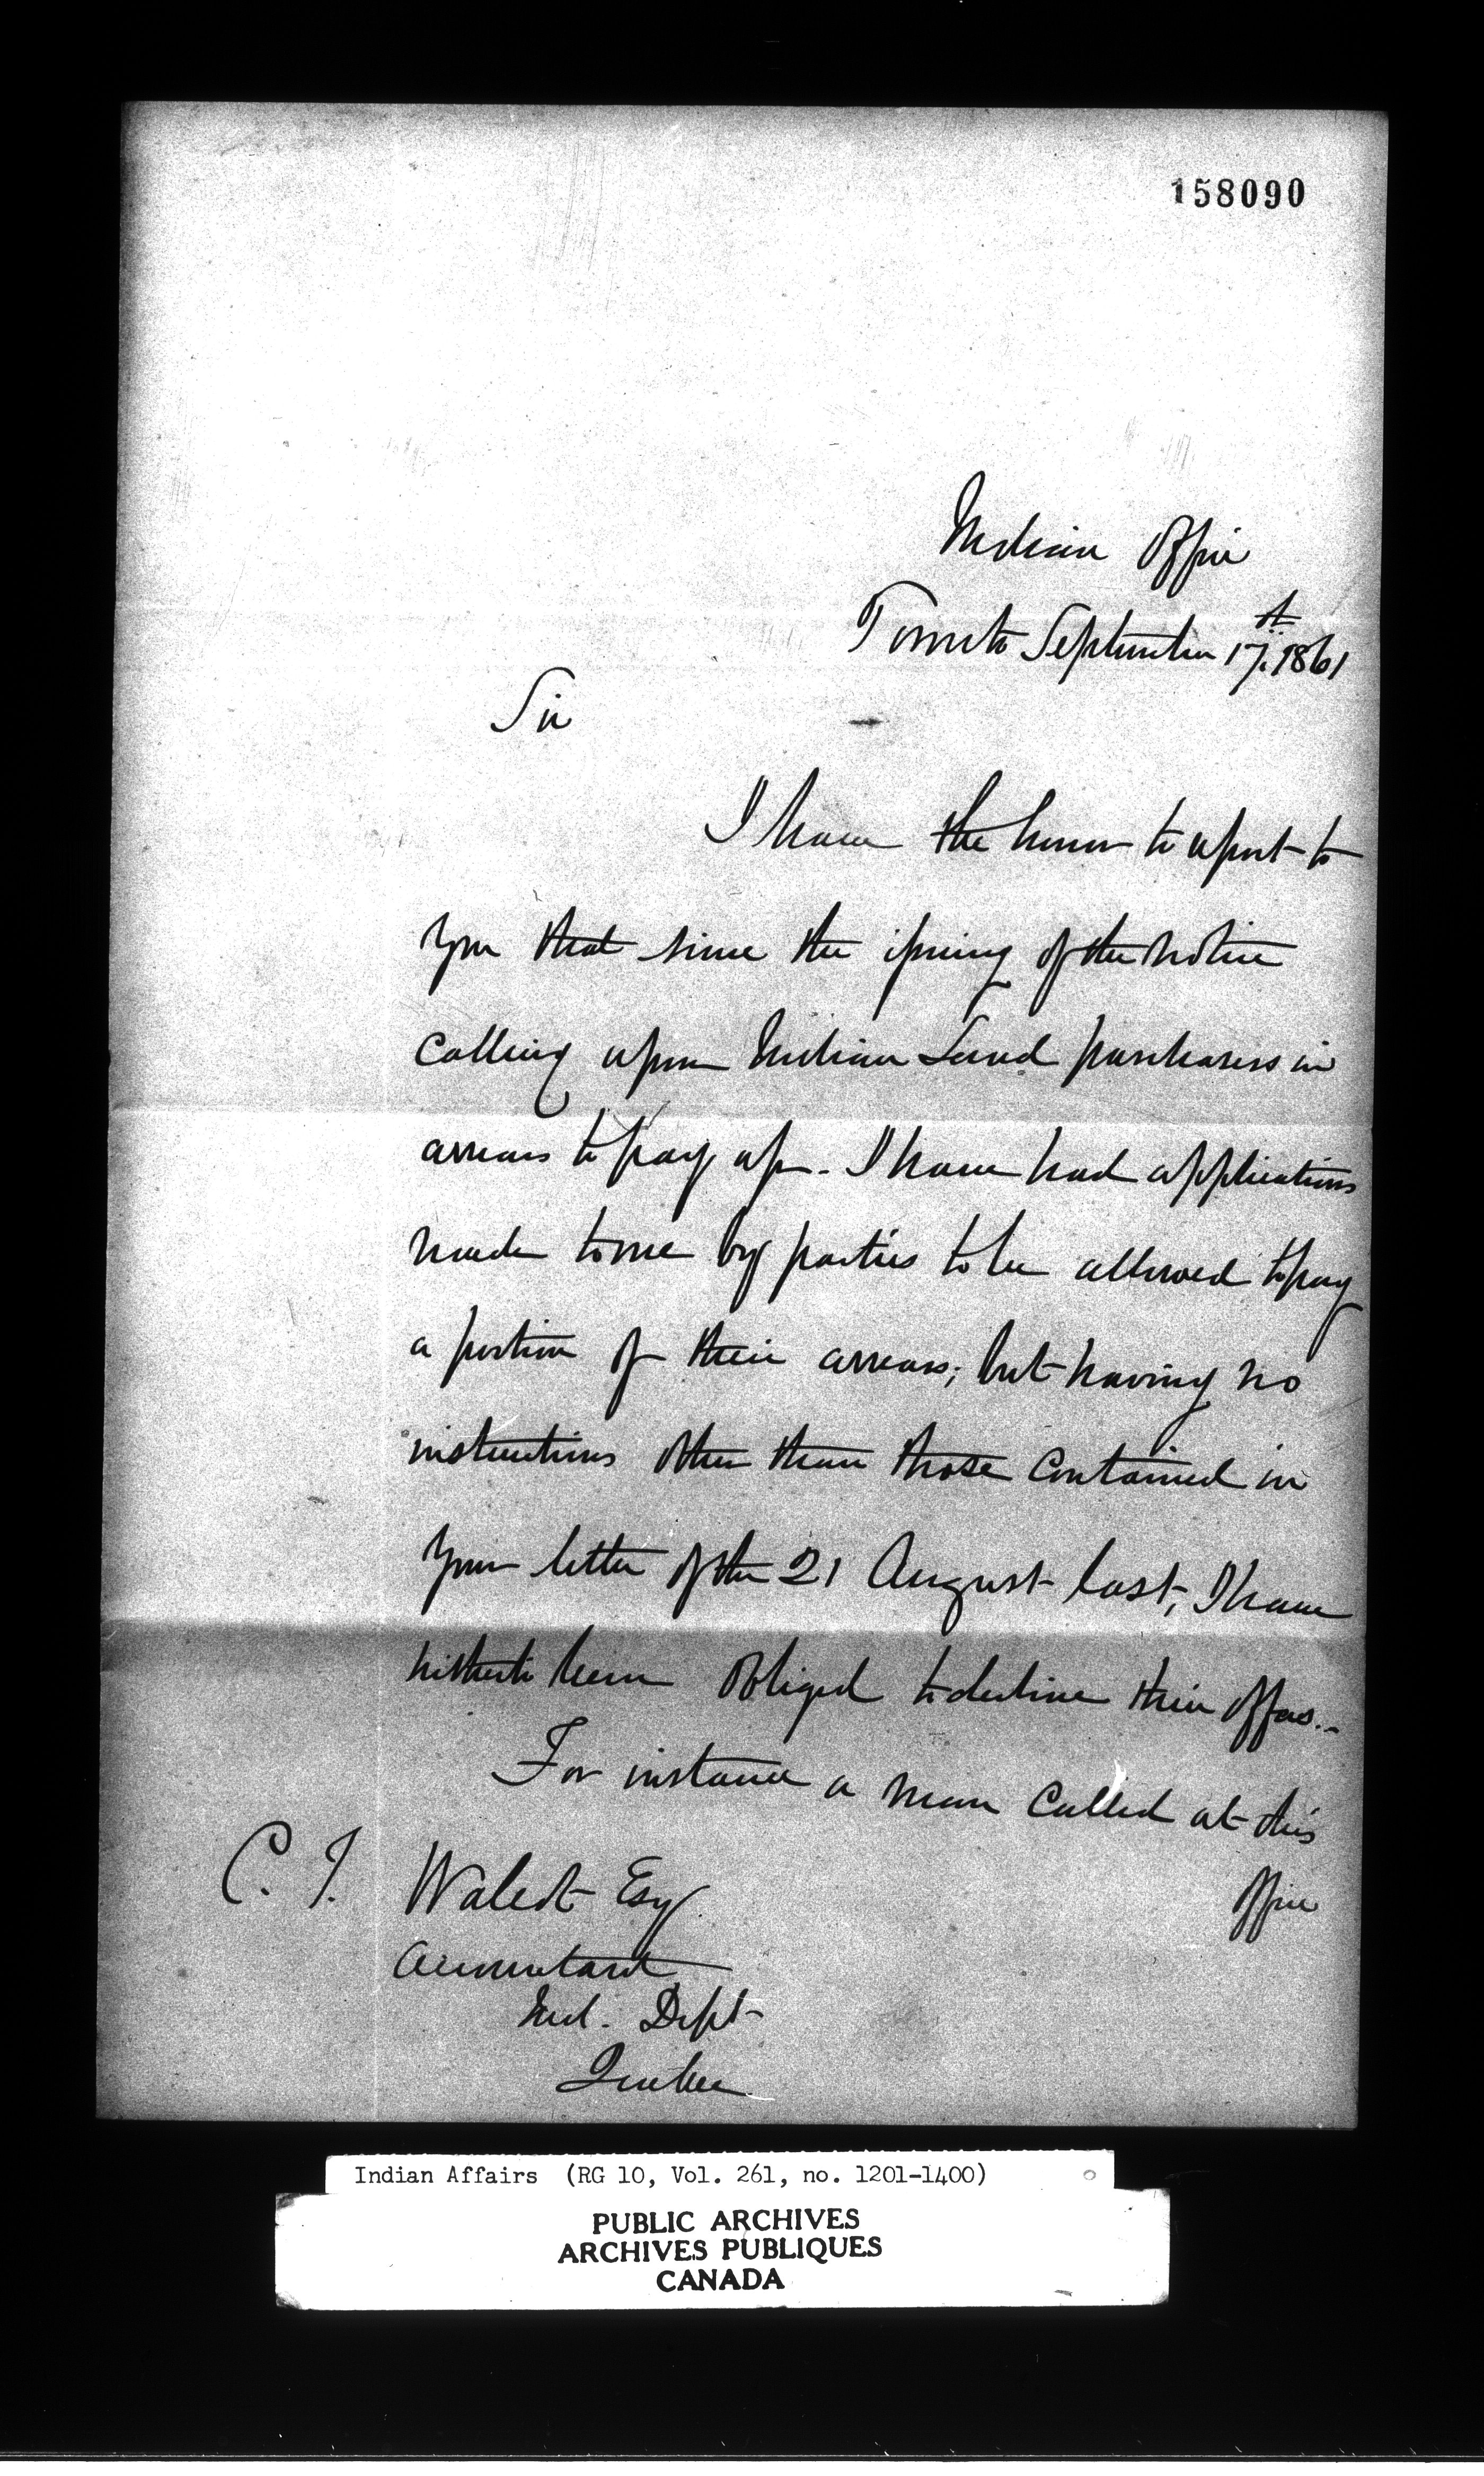 158090
Indian Office
Toronto September 17th. 1861
Sir
I have the honor to report to
you that since the issuing of the notice
calling upon Indian Land purchasers in
arrears to pay up. I have had applications
made to me by parties to be allowed to pay
a portion of their arrears; but having no
instructions other than those contained in
your letter of the 21 August last, I have
hitherto been obliged to decline their offers..
For instance a man called at this
office
C. T. Walcot Esq.
Accountant
Ind. Dept
Quebec
Indian Affairs (RG 10, Vol. 261, no. 1201-1400)
PUBLIC ARCHIVES
ARCHIVES PUBLIQUES
CANADA